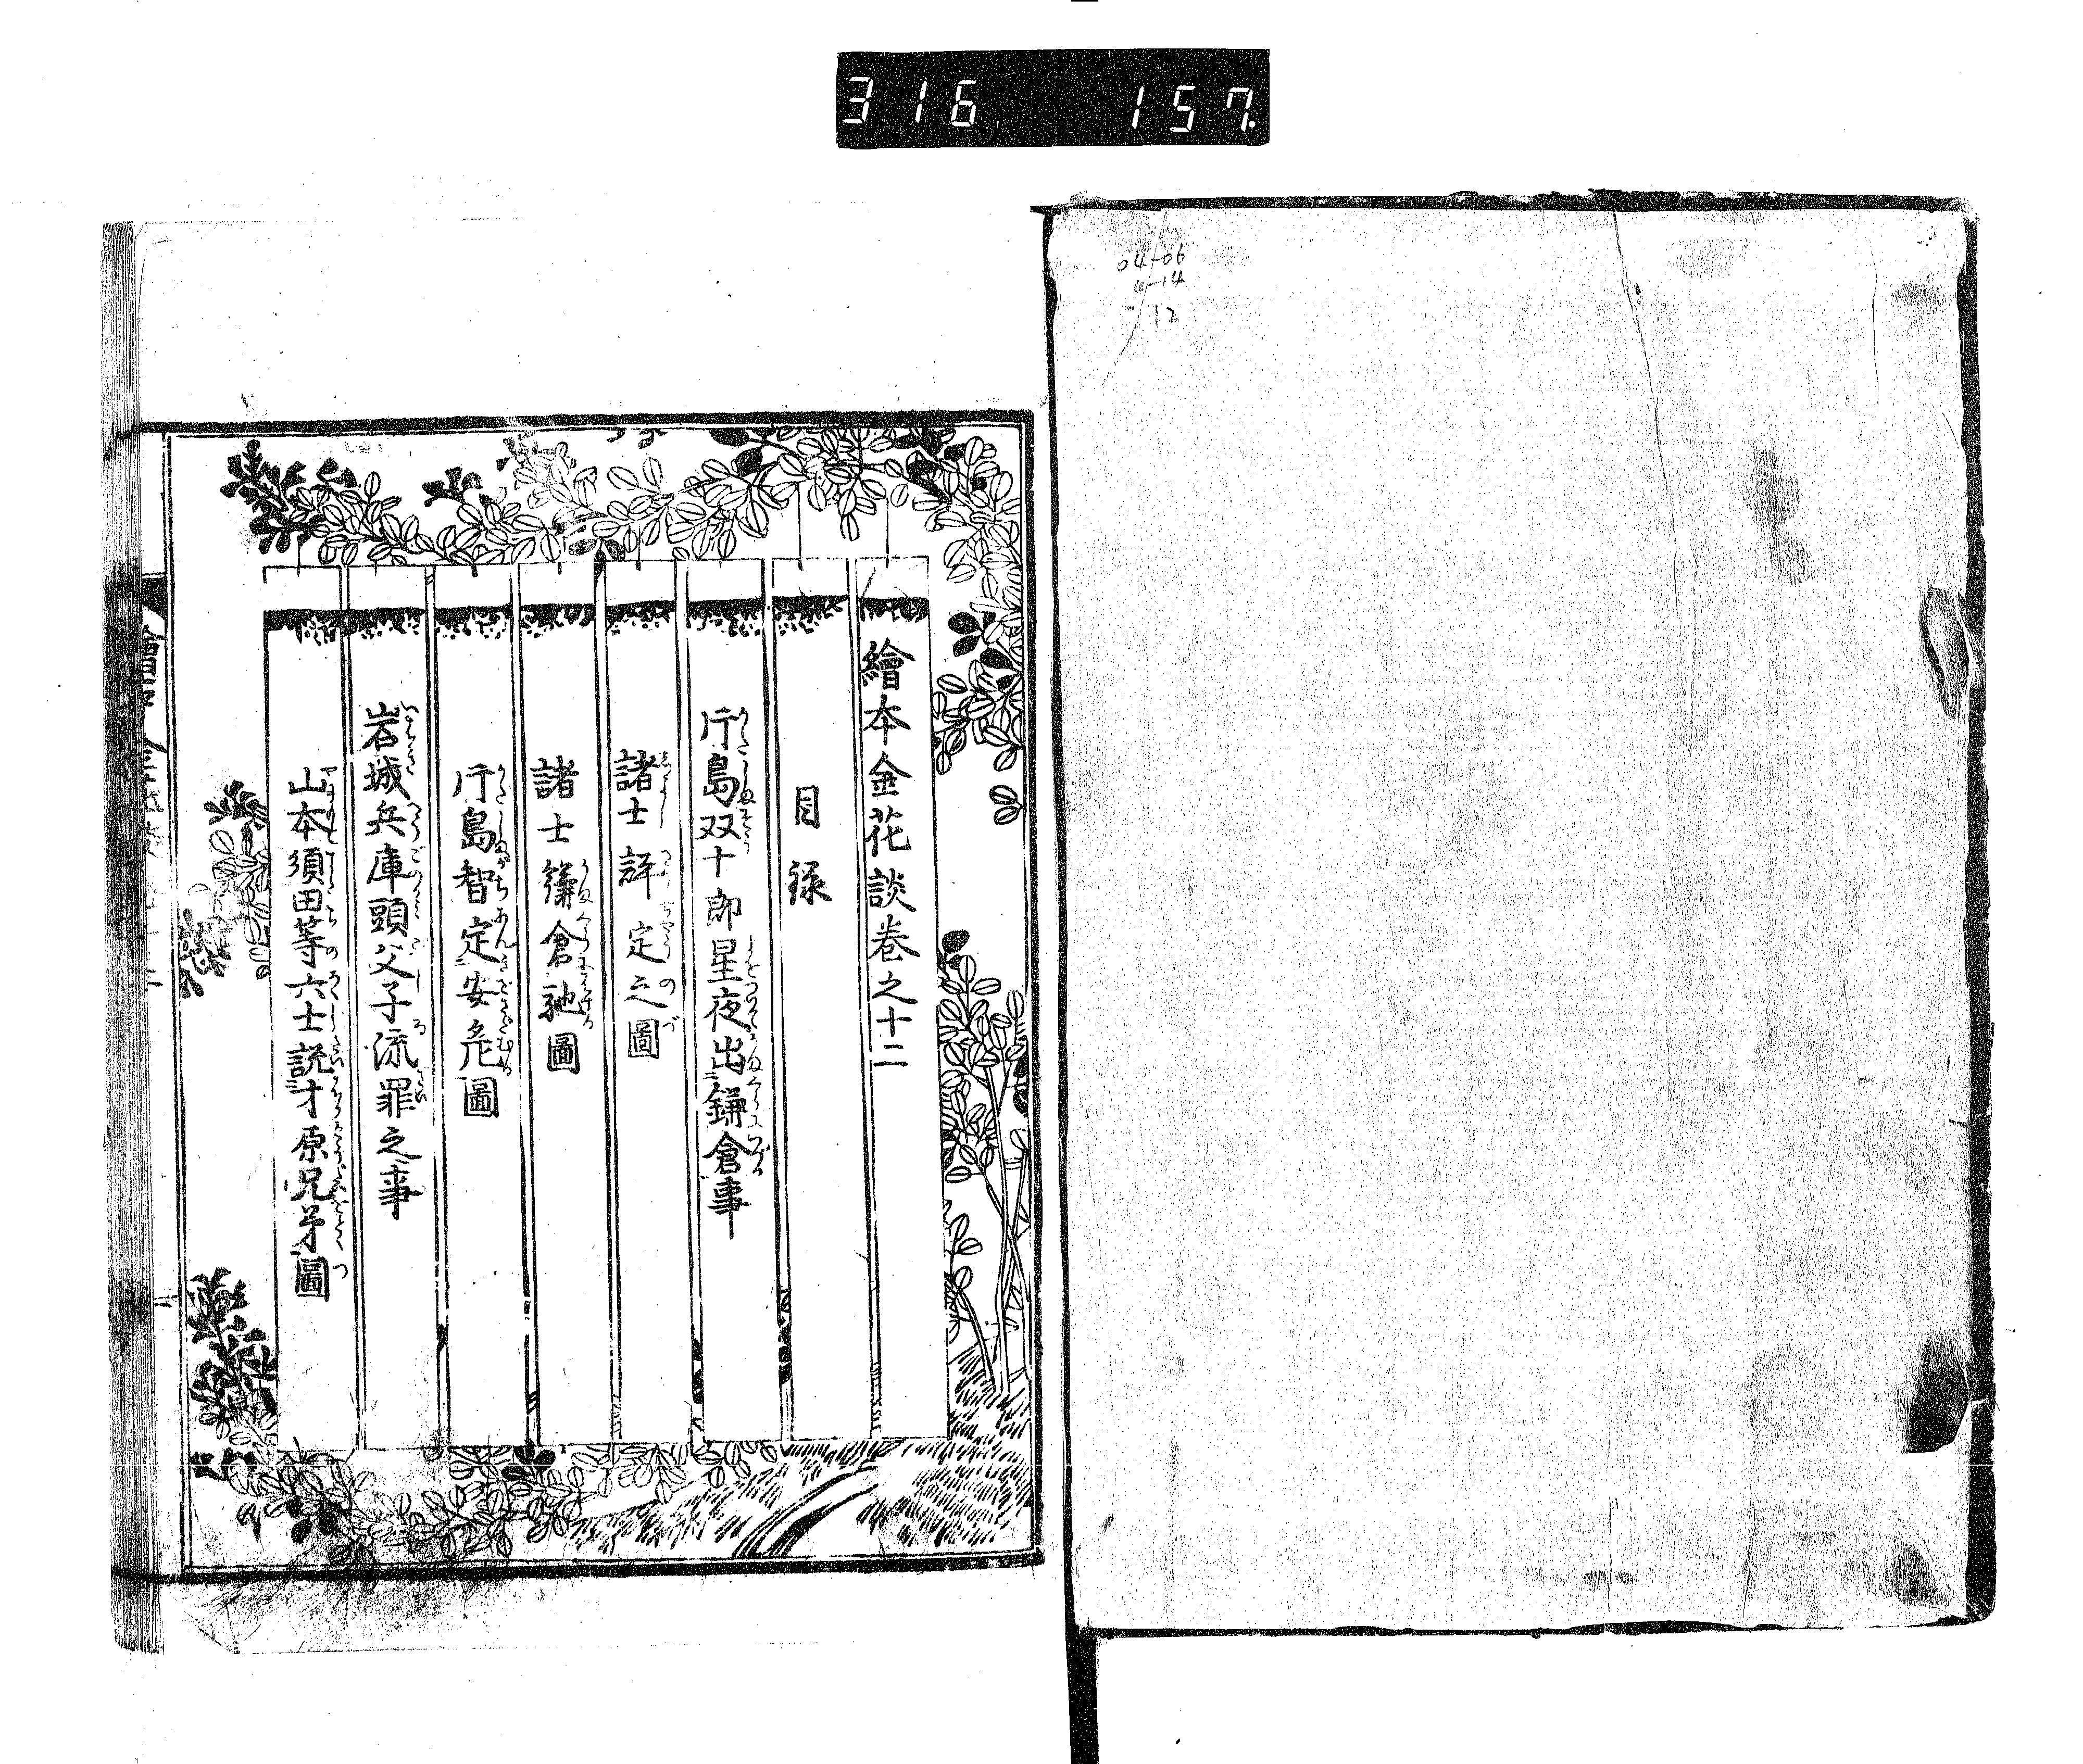 316 157.
04-06
4-14
-12
繪本金花談巻之十二
目録
片島双十郎星夜出鎌倉事
諸士評定之圖
諸士鎌倉馳圖
片島智定安危圖
岩城兵庫頭父子流罪之事
山本須田等六士説才原兄弟圖